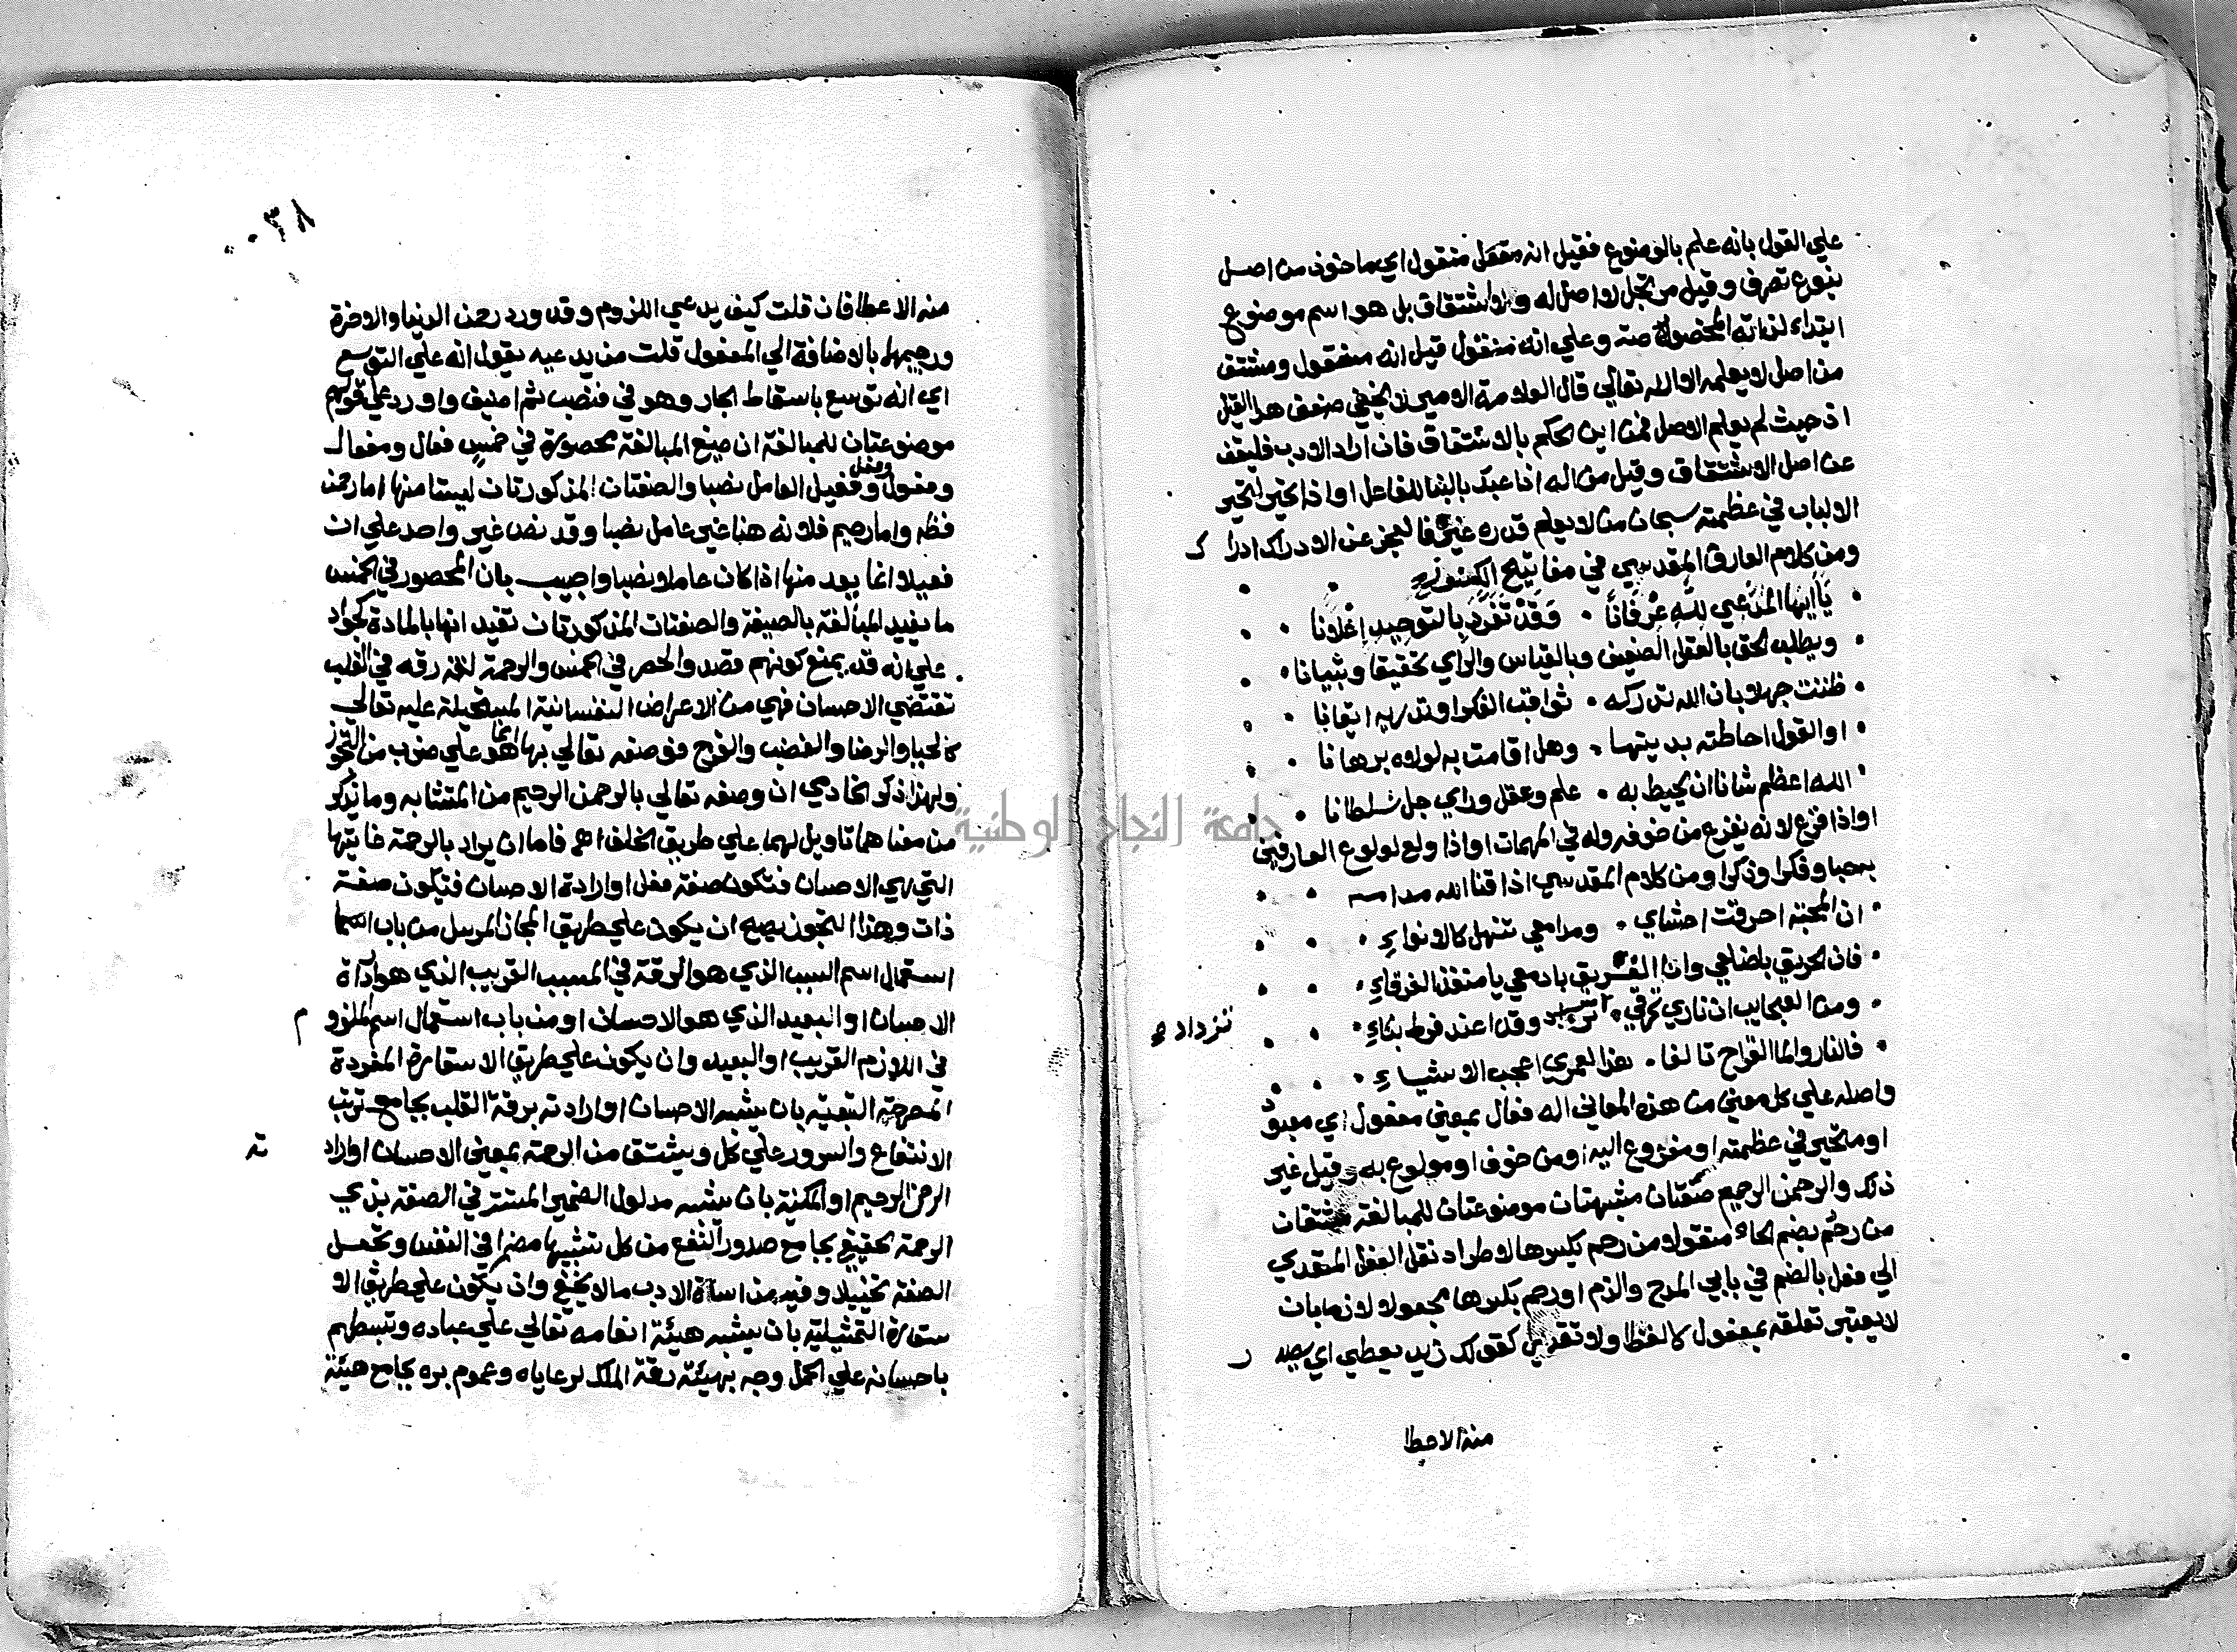 علي القول بانه علم بالوضوع فقيل انه منقول اي ماخوذ من اصل
بنوع تصرف وقيل مرتجل لا اصل له ولا اشتقاق بل هو اسم موضوع
ابتداء لذاته المخصوصة وعلي انه منقول قيل انه منقول ومشتق
من اصل لا يعلمه الا الله تعالي قال العلامة الامير لا يخفي ضعف هذا القيل
اذ حيث لم يعلم الاصل فمن اين الحكم بالاشتقاق فان اراد الادب فليقف
عن اصل الاشتقاق وقيل من اله اذا عبد بالبنا للفاعل او اذا تحير لتحير
الالباب في عظمته سبحان من لا يعلم قدره غيره فالعجز عن الادراك ادراك
ومن كلام العارف المقدسي في مفاتيح الكنوز
يَا أيها المدعي لله عرفانا • وقد تفرد بالتوحيد اعلانا
ويطلب الحق بالعقل الضعيف وبالقياس والراي تحقيقا وتبيانا
ظننت جهلا بان الله تدركه • ثواقب الفكر او تدريه ايقانا
او العقول احاطته بديتها • وهل اقامت به لولاه برهانا
الله اعظم شانا ان يحيط به • علم وعقل وراي جل سلطانا
او اذا فزع لانه يفزع من خوفه وله في المهمات او اذا ولع لولوع العارفين
بحبا وفكرا وذكرا ومن كلام المقدسي اذاقنا الله مدامه
ان المحبة احرقت احشاي • ومدامعي تنهل كالانواءِ
فان الحريق باضلعي وانا الغريق بادمعي يا منقذ الغرقاءِ
ومن العجايب ان ناري تحرقي • تزداد وقدا عند فرط بكاءِ
تزداد صح
فالنار والما القراح تالفا • هذا لعمري اعجب الاشياءِ
واصله علي كل معني من هذه المعاني اله فعال بمعني مفعول اي معبود
او متحير في عظمته او مفزوع اليه او من خوف او مولوع به وقيل غير
ذلك والرحمن الرحيم صفتان مشبهتان موضوعتان للمبالغة مشتقان
من رحُم بضم الحاء منقولا من رحم بكسرها لاطراد نقل الفعل المتعدي
الي فعل بالضم في بابي المدح والذم او رحم بكسرها مجعولا لازما بان
لا يعتبر تعلقه بمفعول لا لفظا ولا تقديرا كقولك زيد يعطي اي يصدر
منه الاعطا
٠٠٣٨
منه الاعطا فان قلت كيف يدعي اللزوم وقد ورد رحمن الدنيا والاخرة
ورحيمهما بالاضافة الي المفعول قلت من يدعيه يقول انه علي التوسع
اي انه توسع باسقاط الجار وهو في فنصب ثم اضيف واورد علي قولهم
موضوعتان للمبالغة ان صيغ المبالغة محصورة في خمس فعال ومفعال
وفعول وفعل وفعيل العامل نصبا والصفتان المذكورتان ليستا منها اما رحمن
فظه واما رحيم فلانه هنا غير عامل نصبا وقد نص غير واحد علي ان
فعيلا انما يعد منها اذا كان عاملا نصبا واجيب بان المحصور في الخمس
ما يفيد المبالغة بالصيغة والصفتان المذكورتان تفيد انها بالمادة كجواد
علي انه قد يمنع كونهم قصدوا الحصر في الخمس والرحمة لغة رقه في القلب
تقتضي الاحسان فهي من الاعراض النفسانية المستحيلة عليه تعالي
كالحيا والرضا والغضب والفرح فوصفه تعالي بها انما هو علي ضرب من التجوز
ولهذا ذكر الخادمي ان وصفه تعالي بالرحمن الرحيم من المتشابه وما يذكر
من معناهما تاويل لهما علي طريق الخلف اهـ فاما ان يراد بالرحمة غايتها
التي هي الاحسان فتكون صفة فعل او ارادة الاحسان فتكون صفة
ذات وهذا التجوز يصح ان يكون علي طريق المجاز المرسل من باب
استعمال اسم السبب الذي هو الرقة في المسبب القريب الذي هو ارادة
الاحسان او البعيد الذي هو الاحسان او من باب استعمال اسم الملزوم
في اللازم القريب او البعيد وان يكون علي طريق الاستعارة المفردة
المصرحة التبعية بان يشبه الاحسان او ارادته برقة القلب بجامع ترتب
الانتفاع والسرور علي كل ويشتق من الرحمة بمعني الاحسان او ارادته
الرحمن الرحيم او المكنية بان يشبه مدلول الضمير المستتر في الصفة بذي
الرحمة الحقيقي بجامع صدور النفع من كل تشبيها مضمرا في النفس وتجعل
الصفة تخييلا وفيه من اساة الادب ما لا يخفي وان يكون علي طريق الا
ستعارة التمثيلية بان يشبه هيئة انعامه تعالي علي عباده وتبسطهم
باحسانه علي اكمل وجه بهيئة رقة الملك لرعاياه وعموم بره بجامع هيئة
جامعة النجاح الوطنية